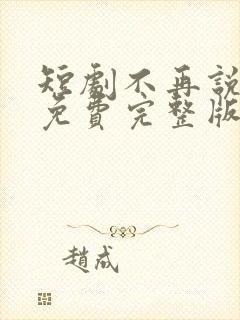 短劇不再說
免費完整版
趙成